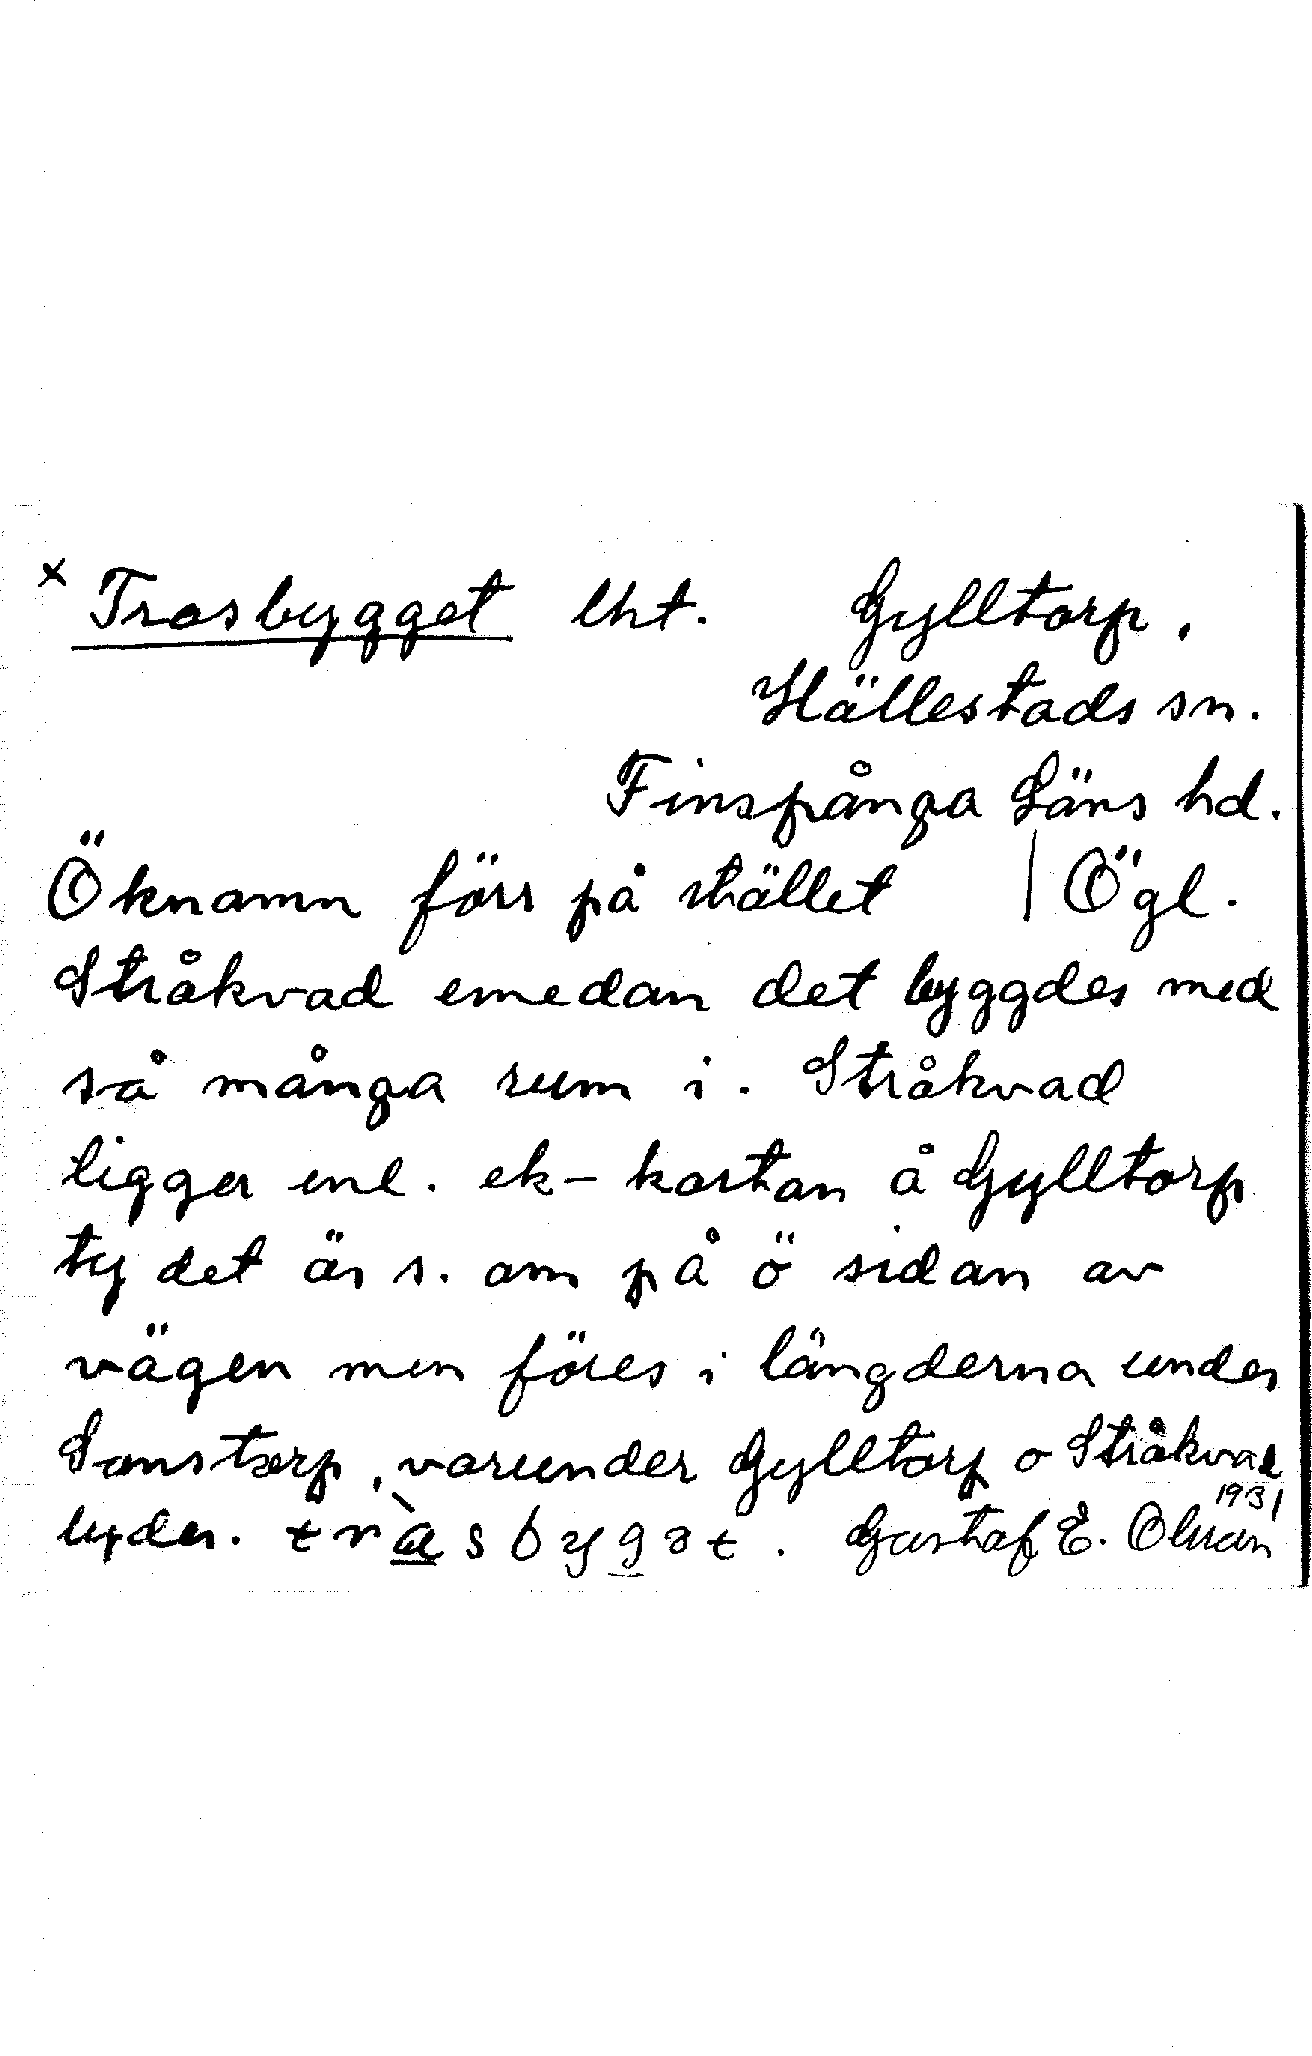 x Trasbygget lht. Gylltorp,
Hällestads sn.
Finspånga Läns hd.
Öknamn förr på stället | Ögl.
Stråkvad emedan det byggdes med
så många rum i. Stråkvad
ligger enl. ek-kartan å Gylltorp
ty det är s. om på ö sidan av
vägen men föres i längderna under
Sonstorp, varunder Gylltorp o Stråkvad
lyder. tràsbygət. Gustaf E. Olsson 1931